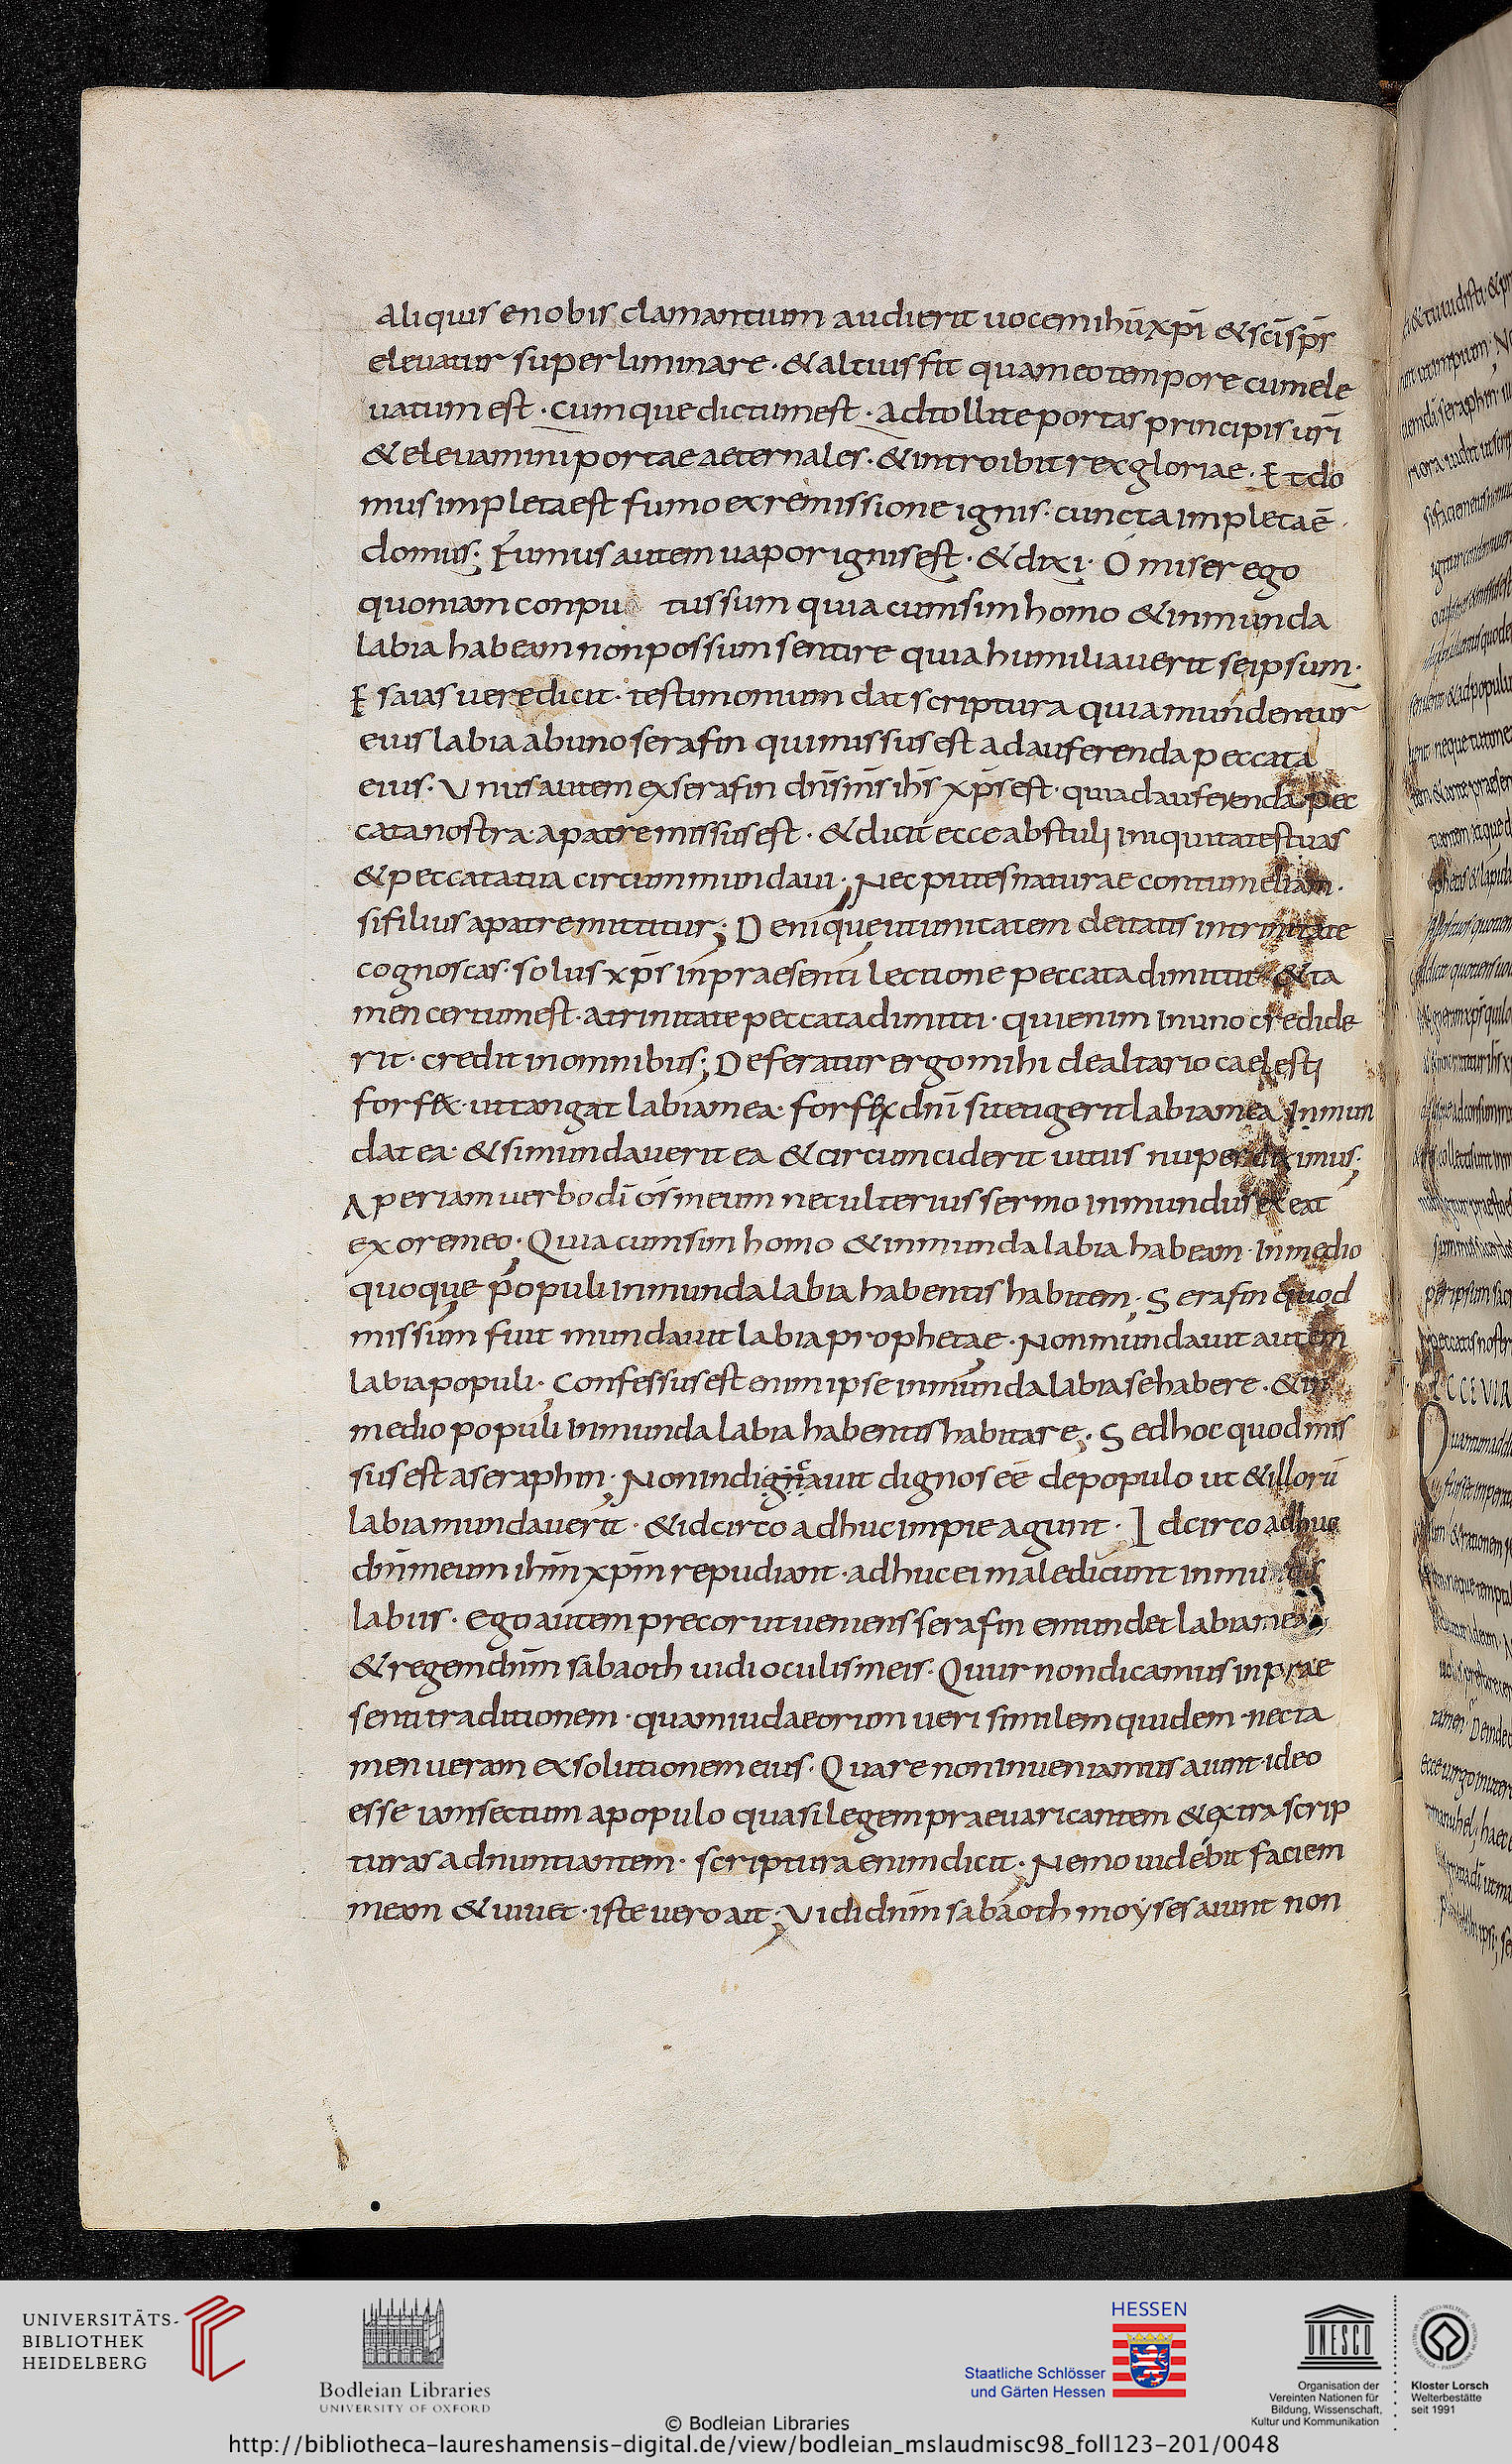 aliquis enobis clamantium audierit uocem ihū xp̄i & sc̄i sp̄s
eleuatur super liminare · & altius fit quam eo tempore cum ele
uatum est · cumque dictum est · adtollite portas principis ur̄i
& eleuamini portae aeternales · & introibit rex gloriae · Et do
mus impleta est fumo ex remissione ignis · cuncta impleta ē ·
domus ; Fumus autem uapor ignis est · & dixi · O miser ego
quoniam conpu   tus sum quia cum sim homo & inmunda
labia habeam non possum sentire quia humiliauerit seipsum ·
Esaias uere dicit · testimonium dat scriptura quia mundentur
eius labia ab uno serafin qui missus est ad auferenda peccata
eius · Unus autem ex serafin dn̄s n̄s ih̄s xp̄s est · qui ad auferenda pec
cata nostra a patre missus est · & dicit ecce abstuli iniquitates tuas
& peccata tua circummundaui ; Nec putes naturae contumeliam ·
si filius a patre mittitur ; Denique ut unitatem deitatis in trinitate
cognoscas · solus xp̄s in praesenti lectione peccata dimittit & ta
men certum est · a trinitate peccata dimitti · qui enim in uno credide
rit · credit in omnibus ; Deferatur ergo mihi de altario caelesti
forfex · ut tangat labia mea · forfex dn̄i si tetigerit labia mea inmun
dat ea · & si mundauerit ea & circumciderit uitiis nuper diximus ;
Aperiam uerbo dī os meum nec ulterius sermo inmundus exeat
ex ore meo ; Quia cum sim homo & inmunda labia habeam · In medio
quoque populi inmunda labia habentis habitem · Serafin quod
missum fuit mundauit labia prophetae · Non mundauit autem
labia populi · Confessus est enim ipse inmunda labia se habere · & in
medio populi inmunda labia habentis habitare ; Sed hoc quod mis
sus est a seraphin ; Non indignauit dignos eē de populo ut & illorū
labia mundauerit · & idcirco adhuc impie agunt · Idcirco adhuc
dn̄m meum ih̄m xp̄m repudiant · adhuc ei maledicunt inmundis
labiis · ego autem precor ut ueniens serafin emundet labia mea
& regem dn̄m sabaoth uidi oculis meis · Quur non dicamus in prae
senti traditionem · quam iudaeorum ueri similem quidem · nec ta
men ueram exsolutionem eius · Quare non inueniamus aiunt · ideo
esse iam sectum a populo quasi legem praeuaricantem & extra scrip
turas adnuntiantem · scriptura enim dicit ; Nemo uidebit faciem
meam & uiuet · iste uero ait ; Uidi dn̄m sabaoth moyses aiunt non
UNIVERSITÄTS-
BIBLIOTHEK
HEIDELBERG
Bodleian Libraries
UNIVERSITY OF OXFORD
HESSEN
Staatliche Schlösser
und Gärten Hessen
UNESCO
Organisation der
Vereinten Nationen für
Bildung, Wissenschaft,
Kultur und Kommunikation
Kloster Lorsch
Welterbestätte
seit 1991
© Bodleian Libraries
http://bibliotheca-laureshamensis-digital.de/view/bodleian_mslaudmisc98_foll123-201/0048